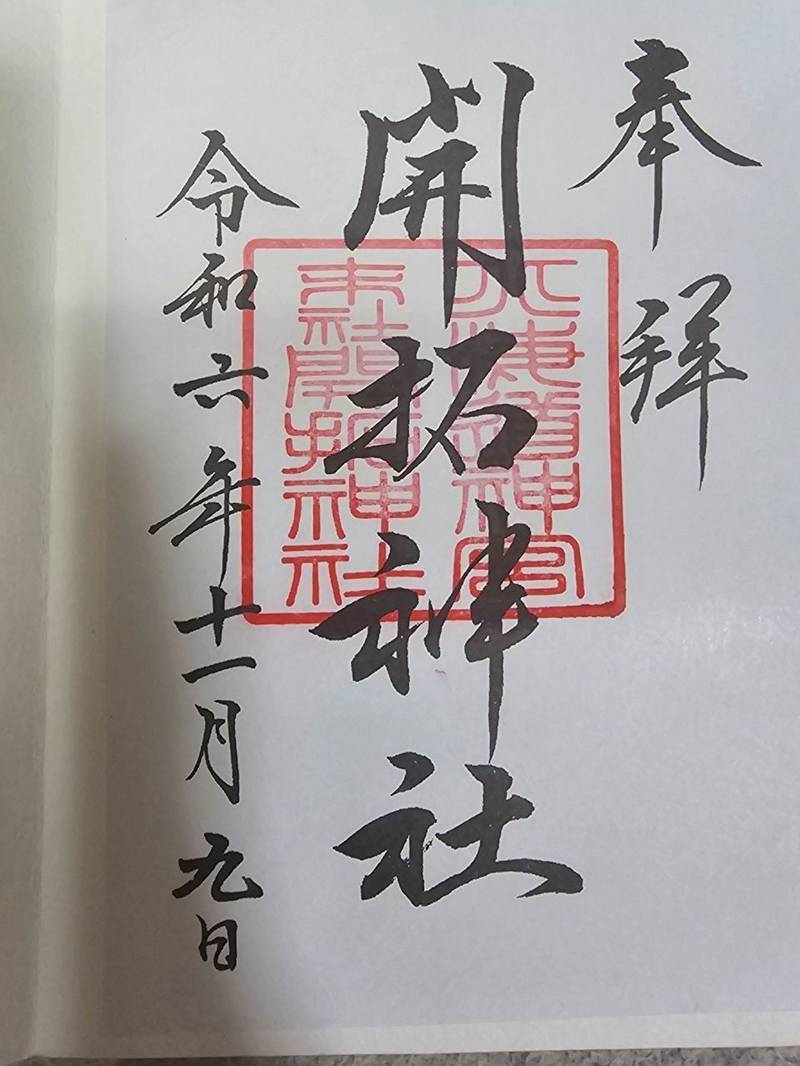 奉拝
開拓神社
令和六年十一月九日
北海道神宮
末社開拓神社